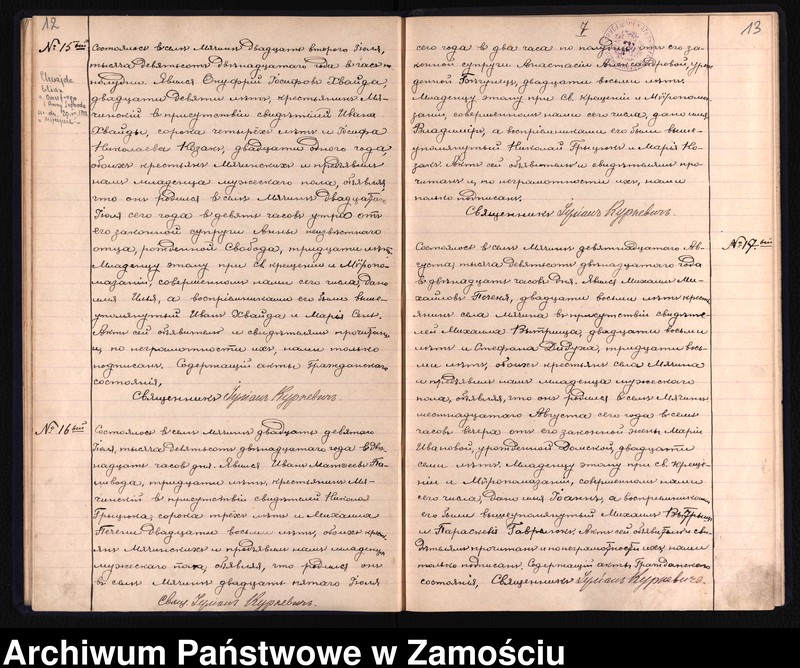 12
№ 15ый
Состоялось въ селѣ Мячинѣ двадцать второго Іюля,
тысяча девятьсотъ двѣнадцатаго года въ часъ по
полудни. Явился Онуфрій Іосифовъ Хвайда,
двадцати девяти лѣтъ, крестьянинъ Мя-
чинскій въ присутствіи свидѣтелей Ивана
Хвайды, сорока четырёхъ лѣтъ и Іосифа
Николаева Козакъ, двадцати одного года,
обоихъ крестьянъ Мячинскихъ и предъявилъ
намъ младенца мужескаго пола, объявляя,
что онъ родился въ селѣ Мячинѣ двадцатаго
Іюля сего года въ девять часовъ утра отъ
его законной супруги Анны неизвѣстнаго
отца, рожденной Свобода, тридцати лѣтъ.
Младенцу этому при Св. крещеніи и Мѵропо-
мазаніи, совершенномъ нами сего числа, дано
имя Илья, а воспріемниками его были выше-
упомянутый Иванъ Хвайда и Марія
Актъ сей объявителю и свидѣтелямъ прочитанъ
и, по неграмотности ихъ, нами только
подписанъ. Содержащій акты Гражданскаго
состоянія,
Священникъ Іуліанъ Куркевичъ.
№ 16ый
Состоялось въ селѣ Мячинѣ двадцать девятаго
Іюля, тысяча девятьсотъ двѣнадцатаго года въ две-
надцать часовъ дня. Явился Иванъ Матвеевъ Па-
ливода, тридцати лѣтъ, крестьянинъ Мя-
чинскій въ присутствіи свидѣтелей Никола
Грыцька, сорока трёхъ лѣтъ и Михаила
Печени двадцати восьми лѣтъ, обоихъ крес-
янъ Мячинскихъ и предъявилъ намъ младенца
мужескаго пола, объявляя, что родился онъ
въ селѣ Мячинѣ двадцать пятаго Іюля
Свящ. Іуліанъ Куркевичъ.
7
13
сего года въ два часа по полудни отъ его за-
конной супруги Анастасіи Александровой, урож-
денной двадцати восьми лѣтъ.
Младенцу этому при Св. крещеніи и Мѵропома-
заніи, совершенномъ нами сего числа, дано имя
Владиміръ, а воспріемниками его были выше-
упомянутый Николай Грыцько и Марія Ко-
закъ. Актъ сей объявителю и свидѣтелямъ про-
читанъ и, по неграмотности ихъ, нами
только подписанъ.
Священникъ Іуліанъ Куркевичъ.
№ 17ый
Состоялось въ селѣ Мячинѣ девятнадцатаго Ав-
густа, тысяча девятьсотъ двѣнадцатаго года
въ двѣнадцать часовъ дня. Явился Михаилъ Ми-
хайловъ Печеня, двадцати восьми лѣтъ крест-
янинъ села Мячина въ присутствіи свидѣте-
лей Михаила Вѣтрица, двадцати восьми
лѣтъ и Стефана Дидуха, тридцати вось-
ми лѣтъ, обоихъ крестьянъ села Мячина
и предъявилъ намъ младенца мужескаго
пола, объявляя, что онъ родился въ селѣ Мячинѣ
шестнадцатаго Августа сего года въ семь
часовъ вечера отъ его законной жены Маріи
Ивановой, урожденной Домской, двадцати
семи лѣтъ. Младенцу этому при св. креще-
ніи и Мѵропомазаніи, совершенномъ нами
сего числа, дано имя Іоаннъ, а воспріемниками
его были вышеупомянутый Михаилъ Вѣтрицъ
и Параскевія Гаврылюкъ. Актъ сей объявителю и сви-
дѣтелямъ прочитанъ и по неграмотности ихъ, нами
только подписанъ. Содержащій акты Гражданскаго
состоянія, Священникъ Іуліанъ Куркевичъ.
Archiwum Państwowe w Zamościu